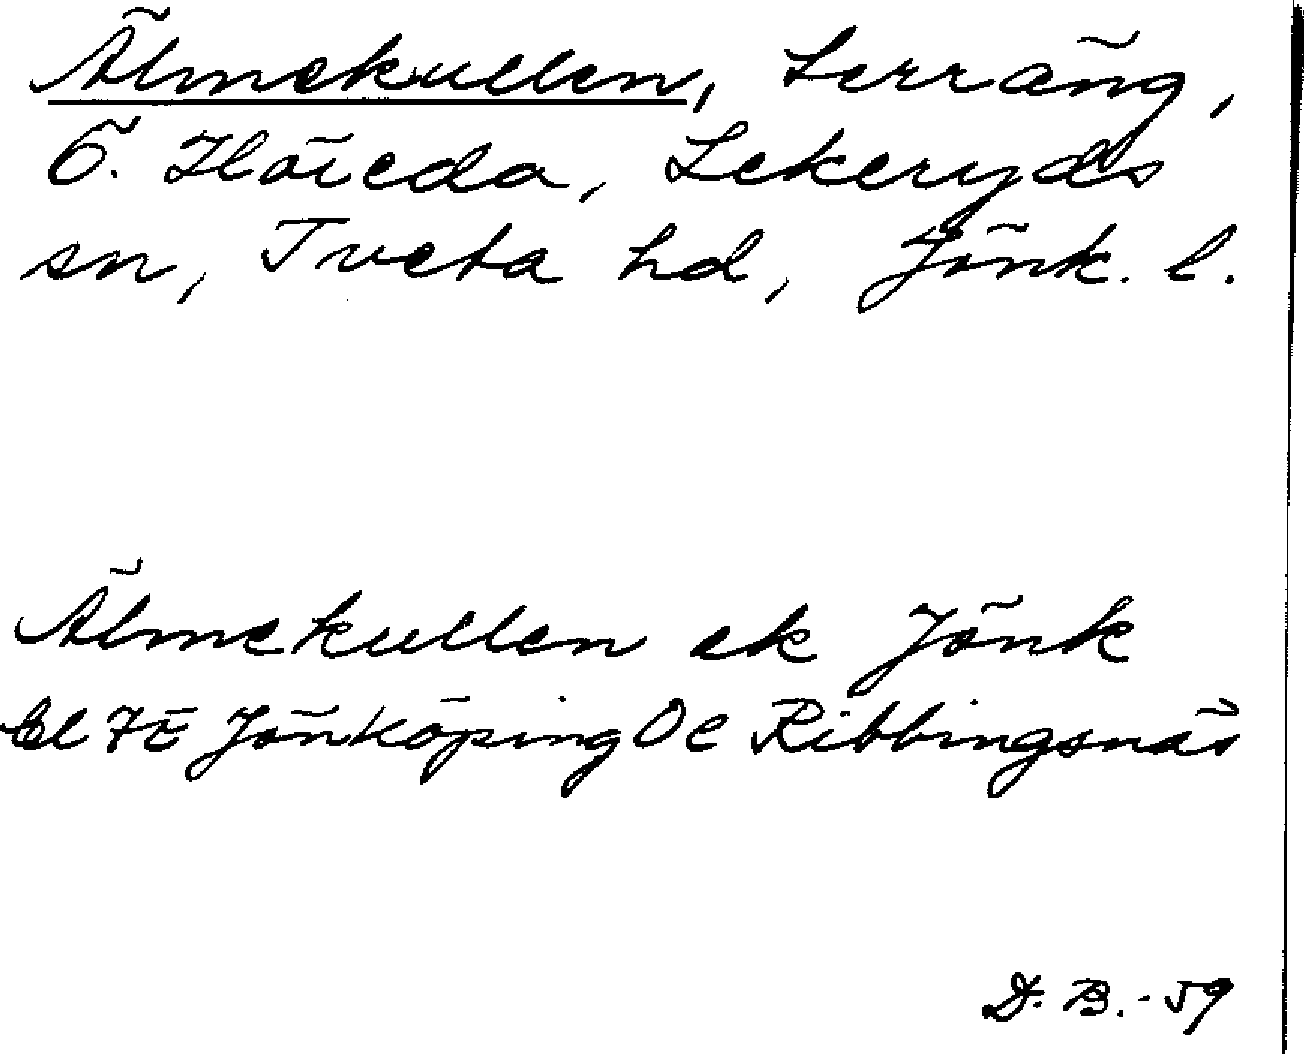 Älmekullen, terräng,
Ö. Lekeryds
sn, Tveta hd, Jönk. l.
Älmekullen ek Jönk
bl 7E Jönköping 0e Ribbingsnäs
D. B. - 59